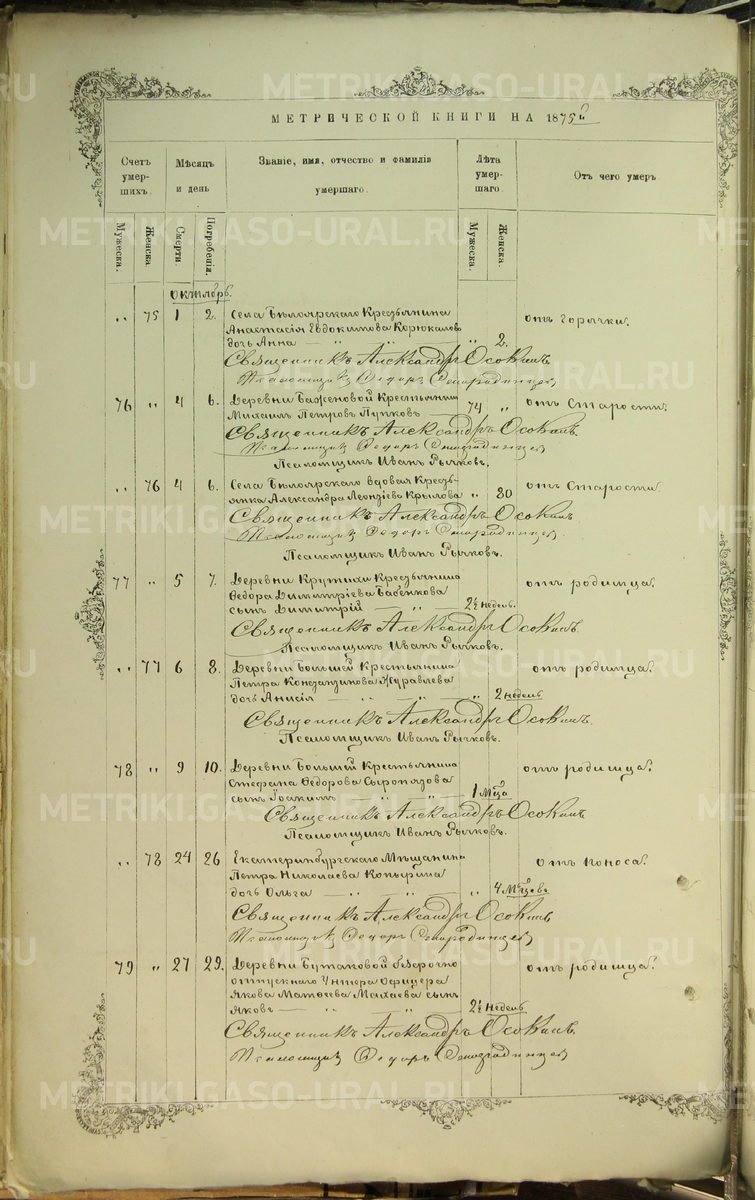 МЕТРИЧЕСКОЙ КНИГИ НА 1875й
Счетъ умер-шихъ.
Мѣсяцъ и день
Званіе, имя, отчество и фамилія умершаго.
Лѣта умер-шаго.
Отъ чего умеръ
Мужеска.
Женска.
Смерти.
Погребенія.
Мужеска.
Женска.
Октябрь.
„ 75 1 2. Села Бѣлоярскаго Крестьянина
Анастасія Евдокимова Корюкалова
дочь Анна — „ „ „ 2. отъ Горячки.
Священникъ Александръ Осокинъ
Псаломщикъ Ѳедоръ
76 „ 4 6. Деревни Баженовой Крестьянинъ
Михаилъ Петровъ Пупковъ — 74 „ отъ Старости.
Священникъ Александръ Осокинъ.
Псаломщикъ Ѳедоръ
Псаломщикъ Иванъ Рычковъ.
„ 76 4 6. Села Бѣлоярскаго вдовая Кресть-
янка Александра Леонтіева Крылова „ 80 отъ Старости.
Священникъ Александръ Осокинъ
Псаломщикъ Ѳедоръ
Псаломщикъ Иванъ Рычковъ.
77 „ 5 7. Деревни Крутихи Крестьянина
Ѳедора Димитріева Бабенкова
сынъ Димитрій — „ 2½ недѣль. отъ родимца.
Священникъ Александръ Осокинъ.
Псаломщикъ Иванъ Рычковъ.
„ 77 6 8. Деревни Большей Крестьянина
Петра Константинова Журавлева
дочь Анисія — „ — „ — „ 2 недѣль отъ родимца.
Священникъ Александръ Осокинъ.
Псаломщикъ Иванъ Рычковъ.
78 „ 9 10. Деревни Большей Крестьянина
Стефана Ѳедорова Сыропятова
сынъ Іоакимъ — „ — „ — 1 Мѣсца отъ родимца.
Священникъ Александръ Осокинъ
Псаломщикъ Иванъ Рычковъ.
„ 78 24 26 Екатеринбургскаго Мѣщанина
Петра Николаева Копырина
дочь Ольга — „ — „ — „ 4 Мѣсцевъ отъ поноса.
Священникъ Александръ Осокинъ
Псаломщикъ Ѳедоръ
79 „ 27 29. Деревни Бутаковой безсрочно
отпускнаго Унтеръ Офицера
Якова Матѳеева сынъ
Яковъ — „ — „ 2½ недѣль отъ родимца.
Священникъ Александръ Осокинъ.
Псаломщикъ Ѳедоръ
METRIKI.GASO-URAL.RU